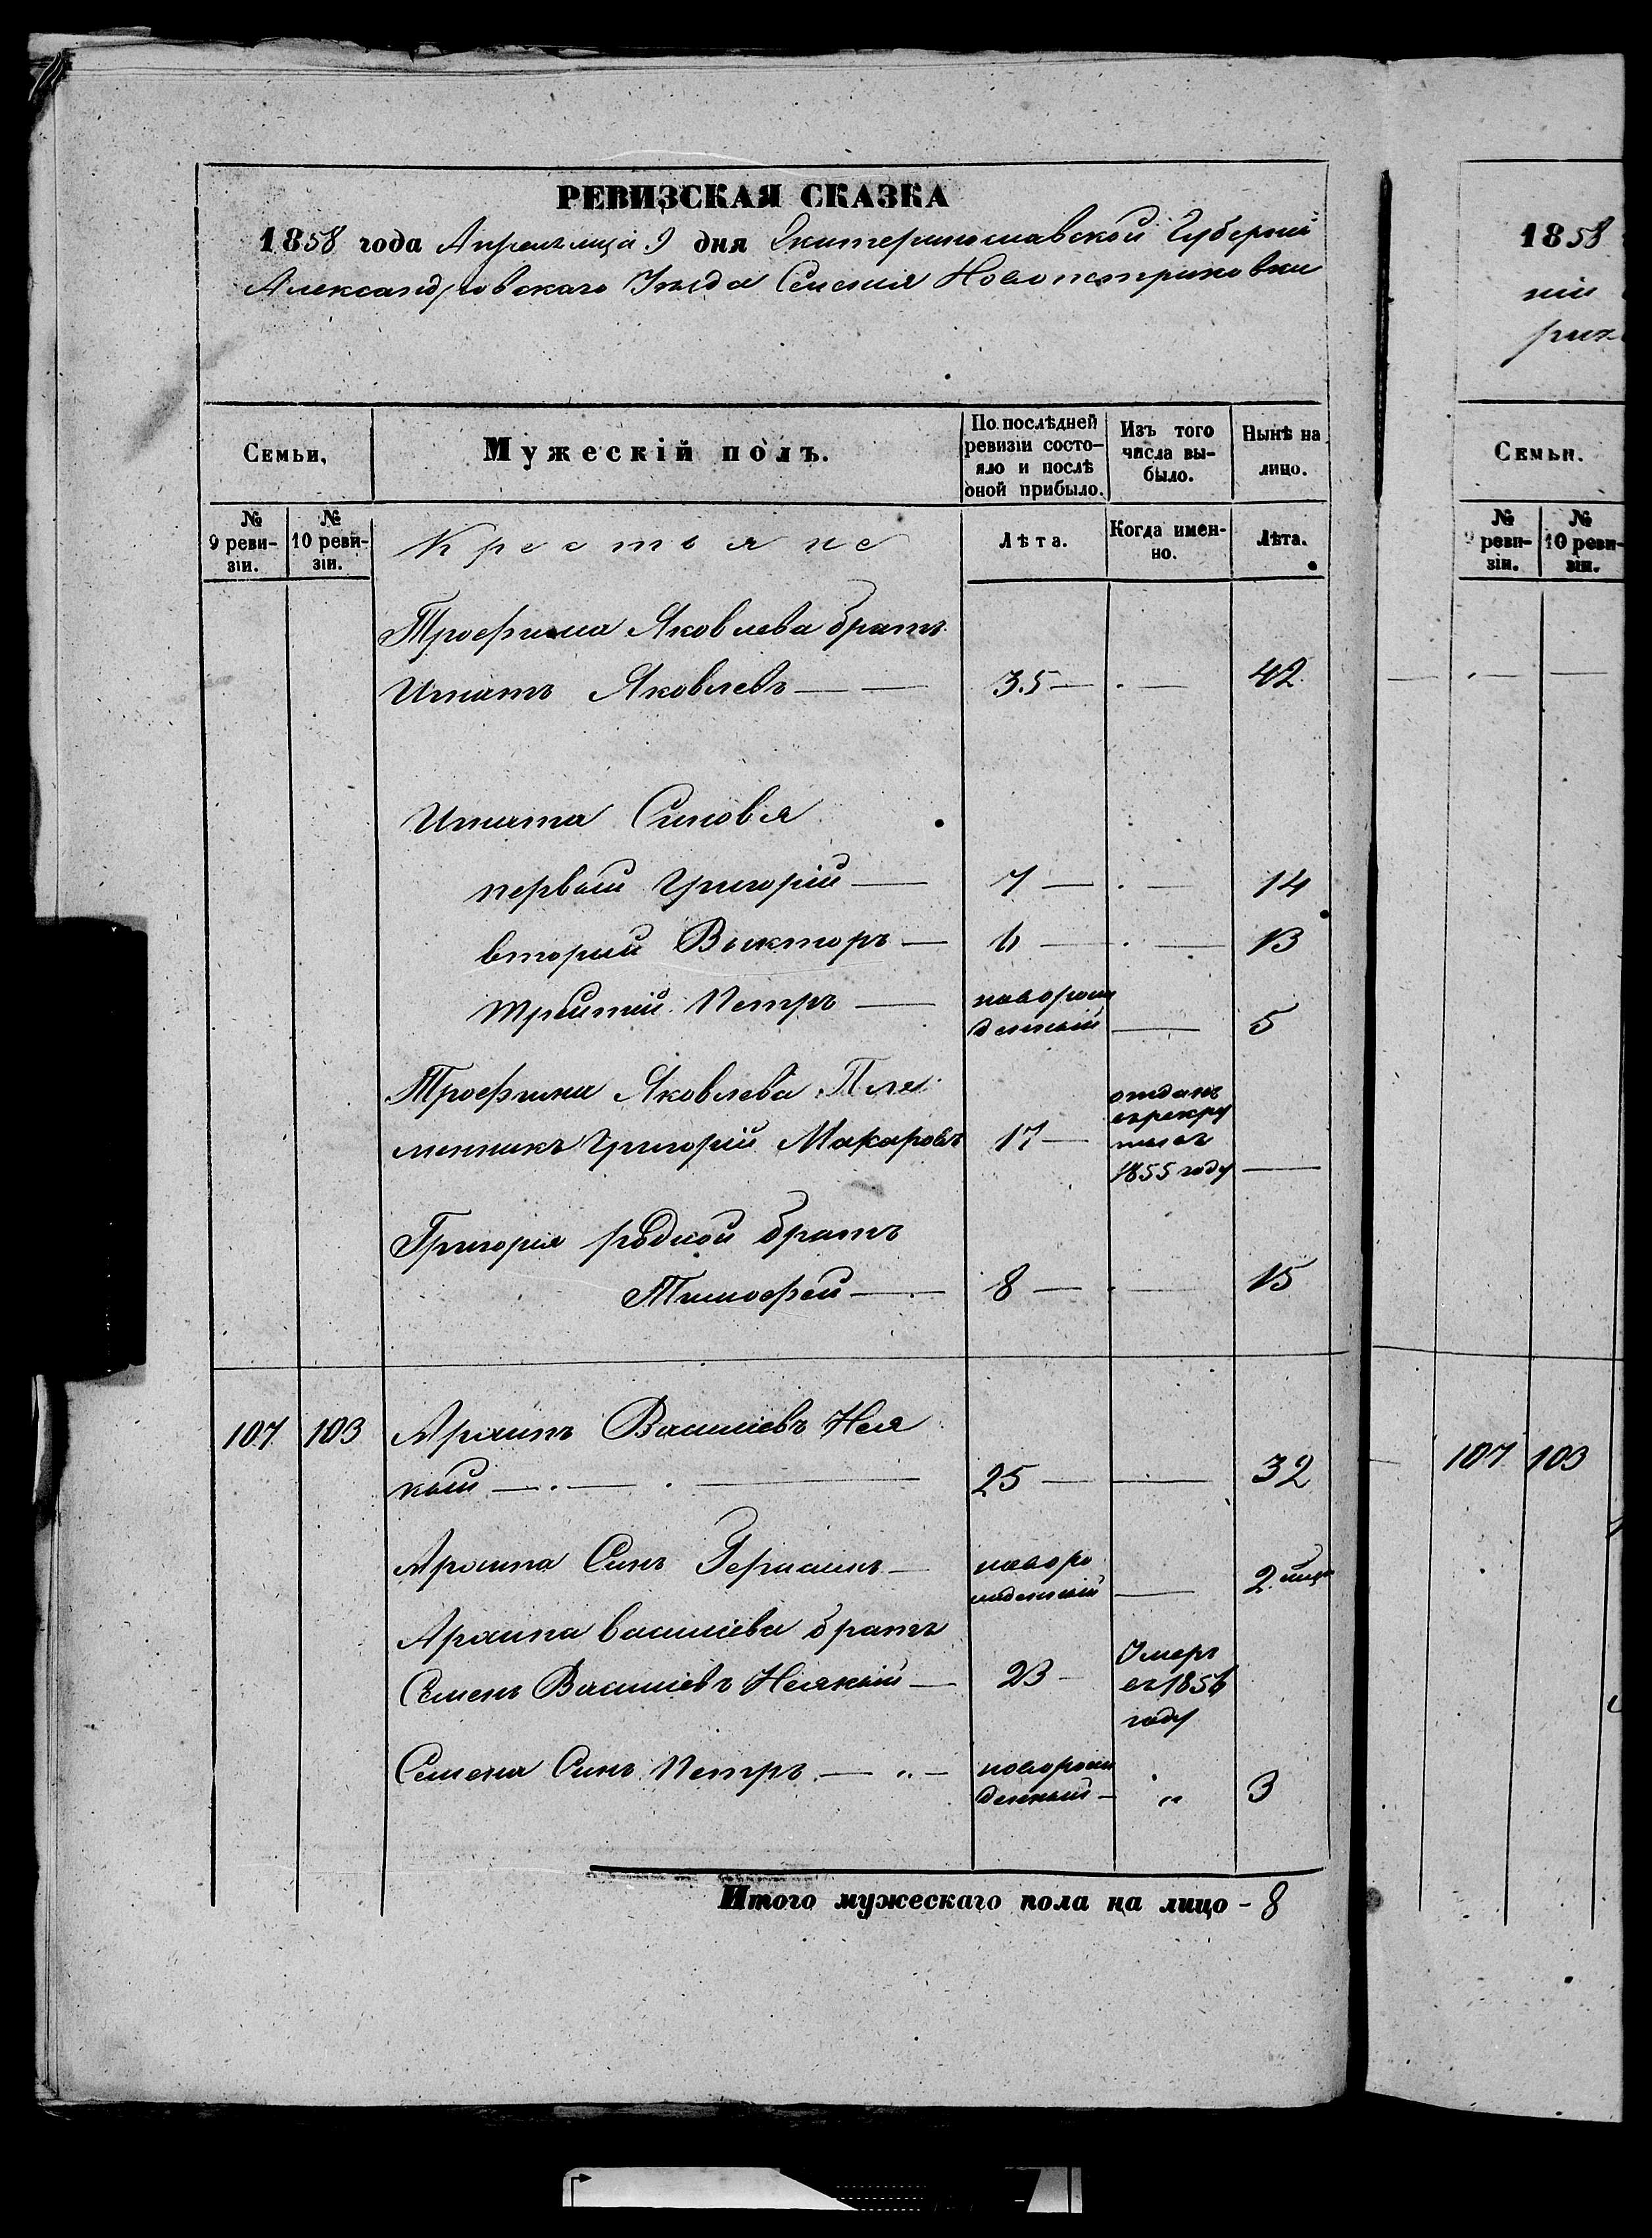 РЕВИЗСКАЯ СКАЗКА
1858 года Апрель мца 9 дня Екатеринославской Губерний
Александровскаго Уезда Селения Новопетриковки
Семьи,
Мужескій полъ.
По послѣдней ревизіи состо-
яло и послѣ
оной прибыло.
Изъ того
числа вы-
было.
Нынѣ на
лицо.
№
9 реви-
зіи.
№
10 реви-
зіи.
Крестьяне
Лѣта.
Когда имен-
но.
Лѣта.
Трофима Яковлева братъ
Игнатъ Яковлевъ — — 35 — . — 42
Игната Синовья
первый Григорій — 7 — . — 14
вторый Викторъ — 6 — . — 13
третий Петръ — новорож
денный — 5
Трофима Яковлева Пле
менникъ Григорій Макаровъ 17 —
отданъ
в рекру
ты въ
1855 году —
Григорія родной братъ
Тимофей — 8 — . — 15
107 103 Архипъ Василіевъ Нея
кый — . — . — 25 — — 32
Архипа Синъ Германъ — новоро
жденный — 2 мца
Архипа Василіева братъ
Семенъ Василіевъ Неякый — 23 —
Умеръ
въ 1856
году
Семена Синъ Петръ — „ — новорож
денный — „ 3
Итого мужескаго пола на лицо - 8
1858
нии
рик
Семьи.
№
9 реви-
зіи.
№
10 реви-
зіи.
107 103